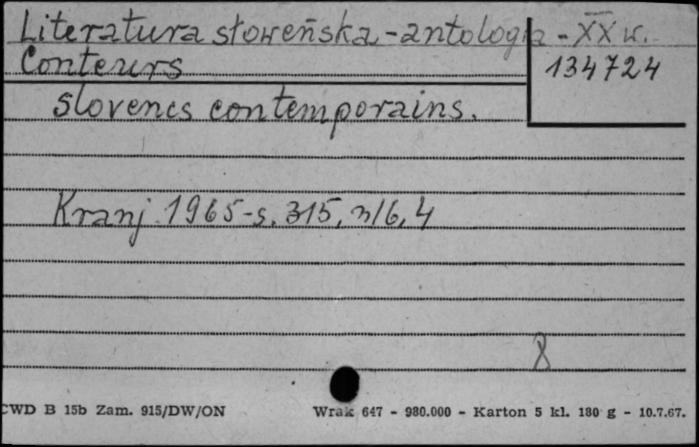 Literatura słoweńska - antologia - XX w.
Conteurs
134724
slovenes contemporains.
Kranj 1965 - s. 315, nlb, 4
8
CWD B 15b Zam. 915/DW/ON
Wrak 647 - 980.000 - Karton 5 kl. 180 g - 10.7.67.